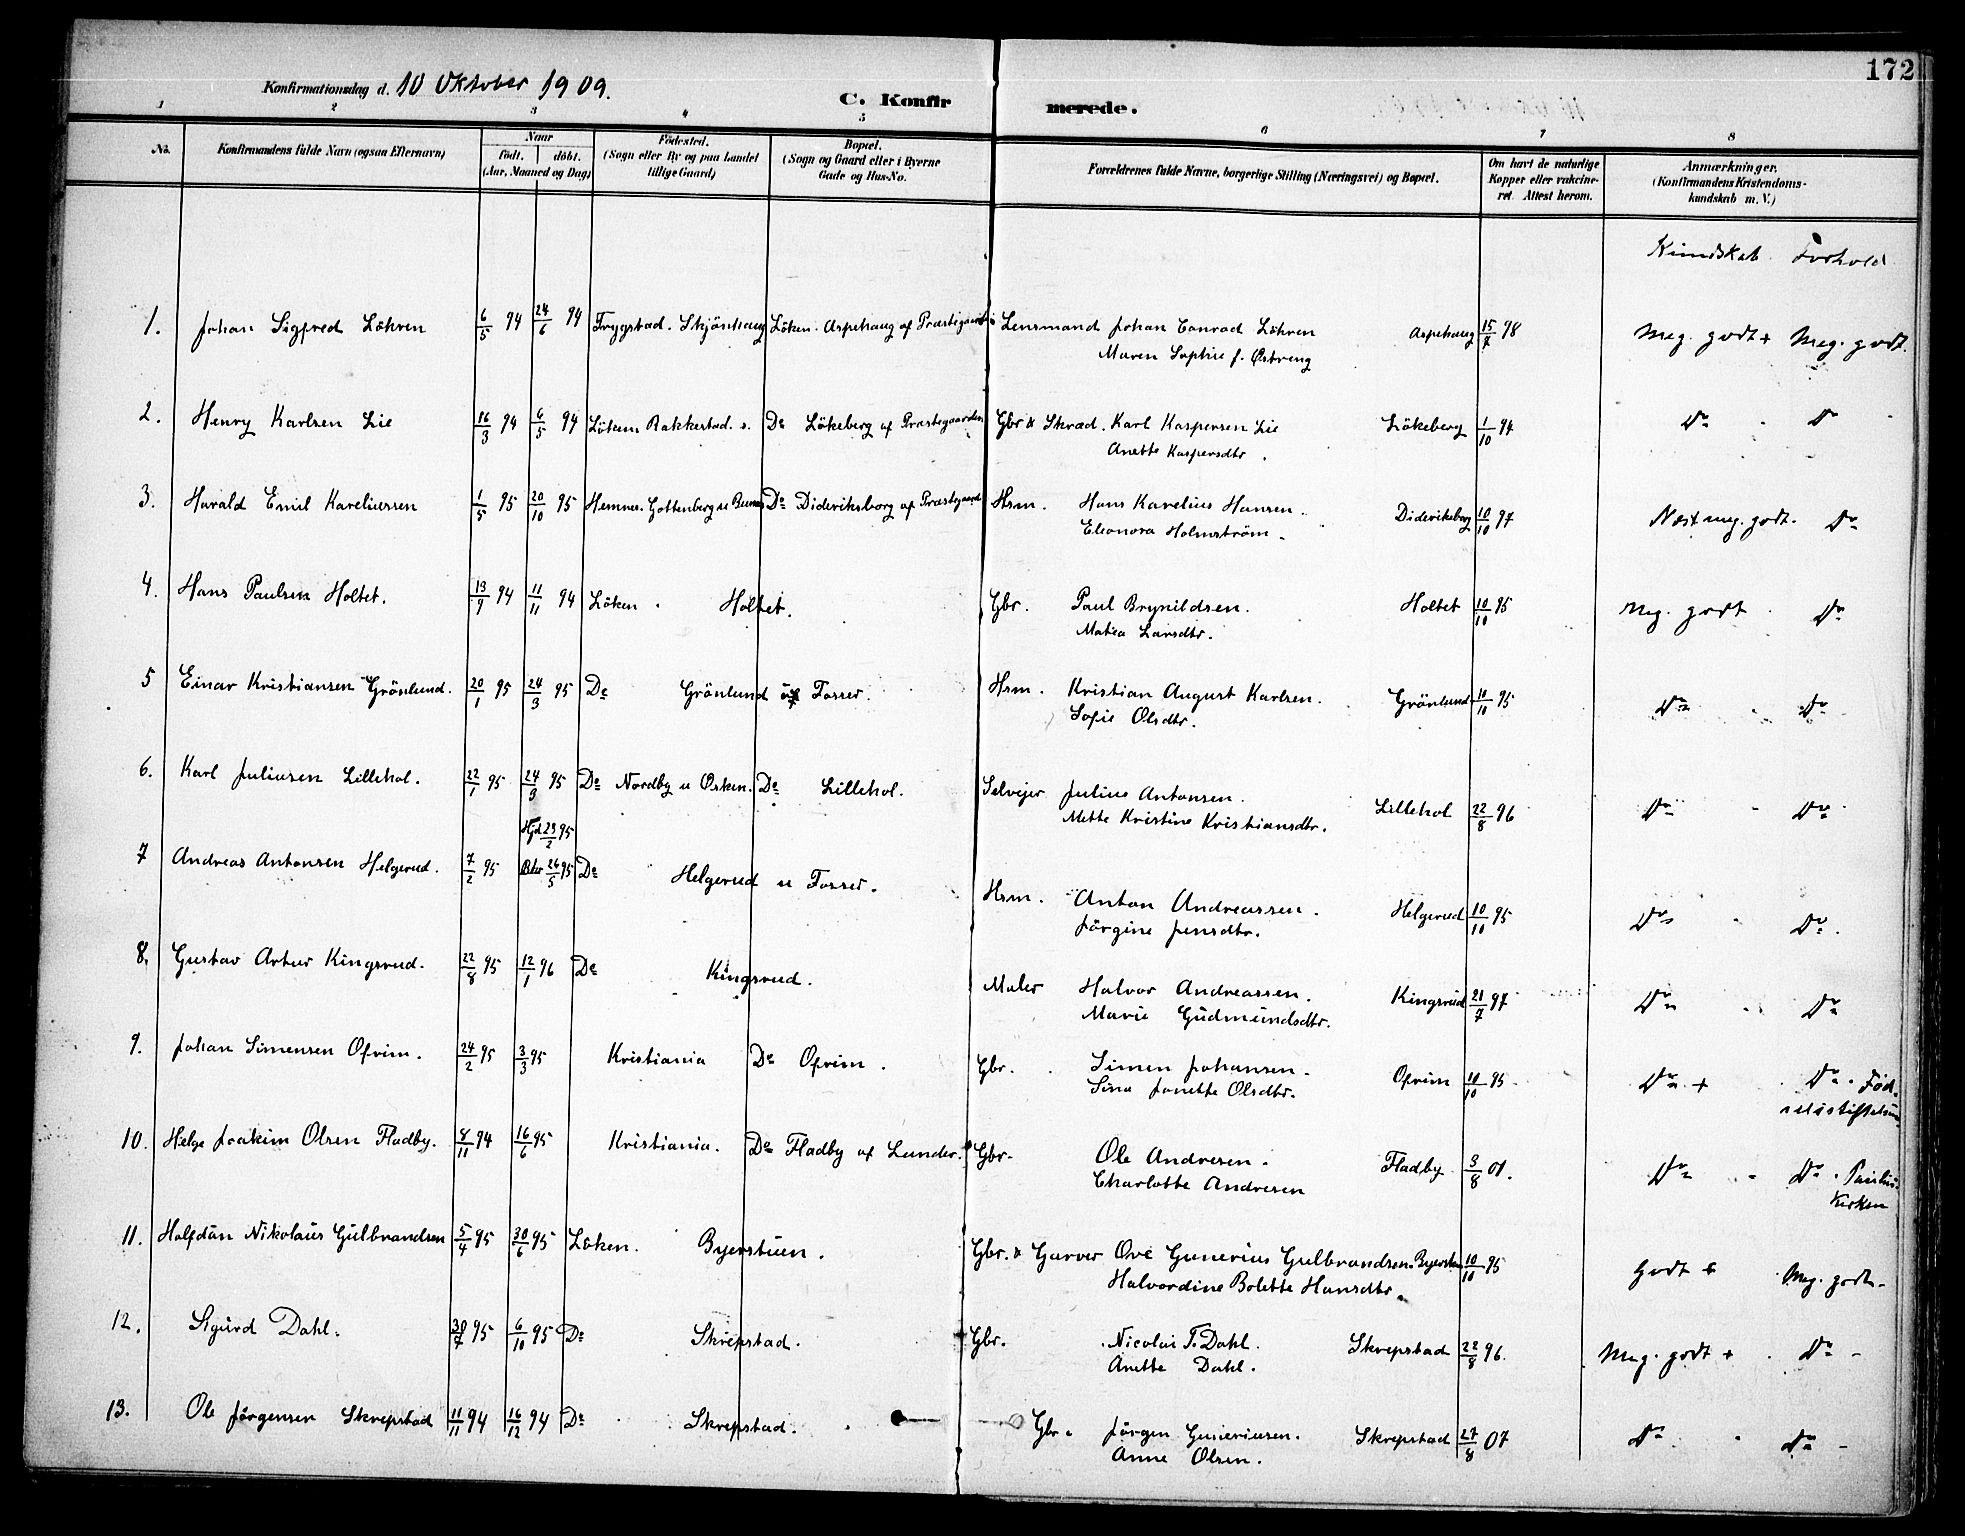 172
Konfirmationsdag d. 10 Oktober 1909.
C. Konfirmerede.
1 2 3 4 5 6 7 8
No.
Konfirmandens fulde Navn (ogsaa Efternavn)
Naar
födt. döbt.
(Aar, Maaned og Dag)
Födested.
(Sogn eller By og paa Landet
tillige Gaard)
Bopæl.
(Sogn og Gaard eller i Byerne
Gade og Hus-No.
Forældrenes fulde Navne, borgerlige Stilling (Næringsvei) og Bopæl.
Om havt de naturlige
Kopper eller vakcine-
ret. Attest herom.
Anmærkninger.
(Konfirmandens Kristendoms-
kundskab m. V.)
Kundskab Forhold
1. Johan Sigfred Löhren 6/5 94 24/6 94 Trygstad. Skjönhaug Löken. Aspehaug af Præstegaarden Lensmand Johan Conrad Löhren Aspehaug 15/7 98 Meg. godt + Meg. godt.
Maren Sophie f. Østreng
2. Henry Karlsen Lie 16/3 94 6/5 94 Löken Rakkestad s. Do Lökeberg af Præstegaarden Gbr & Skræd. Karl Kaspersen Lie Lökeberg 1/10 94 Do Do
Anette Kaspersdtr.
3. Harald Emil Kareliussen 1/5 95 20/10 95 Hemnes. Gottenberg u Do Dideriksborg af Præstegaard Hsm. Hans Karelius Hansen. Dideriksborg 10/10 97 Næst meg. godt. Do
Eleonora Holmström.
4. Hans Paulsen Holtet. 13/9 94 11/11 94 Löken. Holtet. Gbr. Paul Brynildsen. Holtet 10/10 95 Meg. godt. Do
Matea Larsdtr.
5 Einar Kristiansen Grönlund. 20/1 95 24/3 95 Do Grönlund af Fosser. Hsm. Kristian August Karlsen. Grönlund 10/10 95 Do Do
Sofie Olsdtr.
6. Karl Juliusen Lillehol. 22/1 95 24/3 95 Do Nordby u Østen. Do Lillehol. Selvejer Julius Antonsen. Lillehol 22/8 96 Do Do
Mette Kristine Kristiansdtr.
Hjd 23/2 95
7 Andreas Antonsen Helgerud. 7/2 95 26/5 95 Do Helgerud u Fosser. Hsm. Anton Andreassen. Helgerud 10/10 95 Do Do.
Jörgine Jensdtr.
8. Gustav Artur Kingsrud. 22/8 95 12/1 96 Do Kingsrud. Maler Halvor Andreassen. Kingsrud 21/7 97 Do Do
Marie Gudmundsdtr.
9. Johan Simensen Ofrim. 24/2 95 3/3 95 Kristiania Do Ofrim. Gbr. Simen Johansen. Ofrim 10/10 95 Do + Do. Fød-
Sina Jonette Olsdtr. selsstiftelsen
10. Helge Joakim Olsen Fladby. 8/11 94 16/6 95 Kristiania. Do Fladby af Lunder. Gbr. Ole Andresen. Fladby 3/8 01. Do Do. Paulus
Charlotte Andresen Kirken
11. Halfdan Nikolaus Gulbrandsen 5/4 95 30/6 95 Löken. Byerstuen. Gbr. & Garver Ove Gunerius Gulbrandsen. Byerstuen 10/10 95 Godt + Meg. godt.
Halvordine Bolette Hansdtr.
12. Sigurd Dahl. 30/7 95 6/10 95 Do Skrepstad. Gbr. Nicolai T. Dahl. Skrepstad 22/8 96. Meg. godt + Do
Anette Dahl.
13. Ole Jörgensen Skrepstad 11/11 94 16/12 94 Do Skrepstad. Gbr. Jörgen Guneriusen. Skrepstad 27/8 07 Do Do
Anne Olsen.